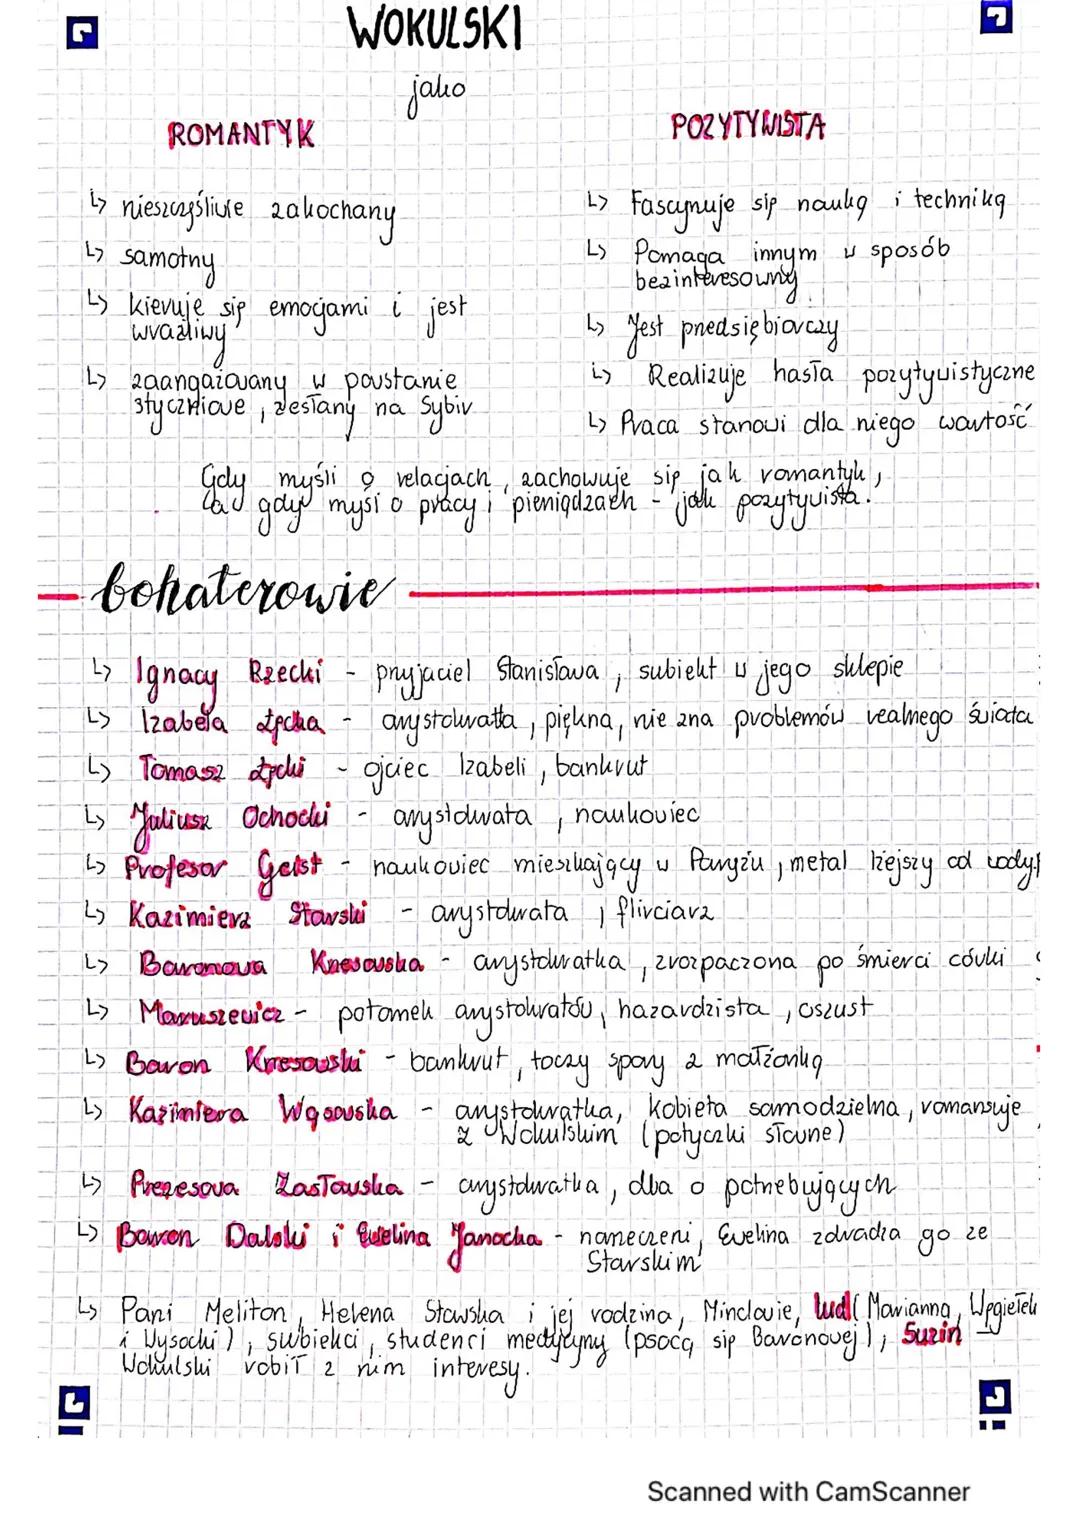 WOKULSKI
jako
ROMANTYK
POZYTYWISTA
↳ nieszczęśliwie zakochany
↳ samotny
↳ kieruje się emocjami i jest
wrażliwy
↳ zaangażowany w powstanie
styczniowe, zesłany na Sybir
↳ Fascynuje się nauką i techniką
↳ Pomaga innym w sposób
bezinteresowny
↳ Jest przedsiębiorczy
↳ Realizuje hasła pozytywistyczne
↳ Praca stanowi dla niego wartość
Gdy myśli o relacjach, zachowuje się jak romantyk,
a gdy myśi o pracy i pieniądzach - jak pozytywista.
bohaterowie
↳ Ignacy Rzecki - przyjaciel Stanisława, subiekt w jego sklepie
↳ Izabela Łęcka - arystokratka, piękna, nie zna problemów realnego świata
↳ Tomasz Łęcki - ojciec Izabeli, bankrut
↳ Juliusz Ochocki - arystokrata, naukowiec
↳ Profesor Geist - naukowiec mieszkający w Paryżu, metal lżejszy od wody
↳ Kazimierz Starski - arystokrata, flirciarz
↳ Baronowa Krzesowska - arystokratka, zrozpaczona po śmierci córki
↳ Maruszewicz - potomek arystokratów, hazardzista, oszust
↳ Baron Krzesowski - bankrut, toczy spory z małżonką
↳ Kazimiera Wąsowska - arystokratka, kobieta samodzielna, romansuje
z Wokulskim (potyczki słowne)
↳ Prezesowa Zasławska - arystokratka, dba o potrzebujących
↳ Baron Dalski i Ewelina Janocka - narzeczeni, Ewelina zdradza go ze
Starskim
↳ Pani Meliton, Helena Stawska i jej rodzina, Minclowie, lud (Marianna, Węgiełek
i Wysocki), subiekci, studenci medycyny (psocą się Baronowej), Suzin -
Wokulski robił z nim interesy.
Scanned with CamScanner